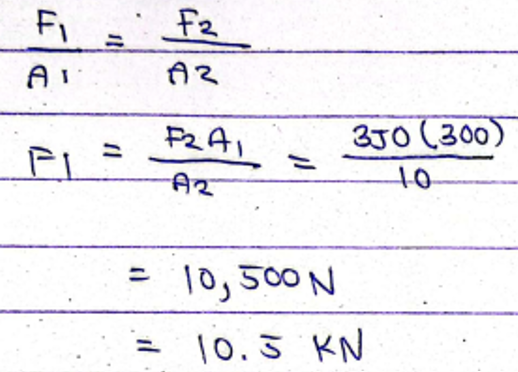 F1/A1 = F2/A2
F1 = F2A1/A2 = 350(300)/10
= 10,500N
= 10.5 KN